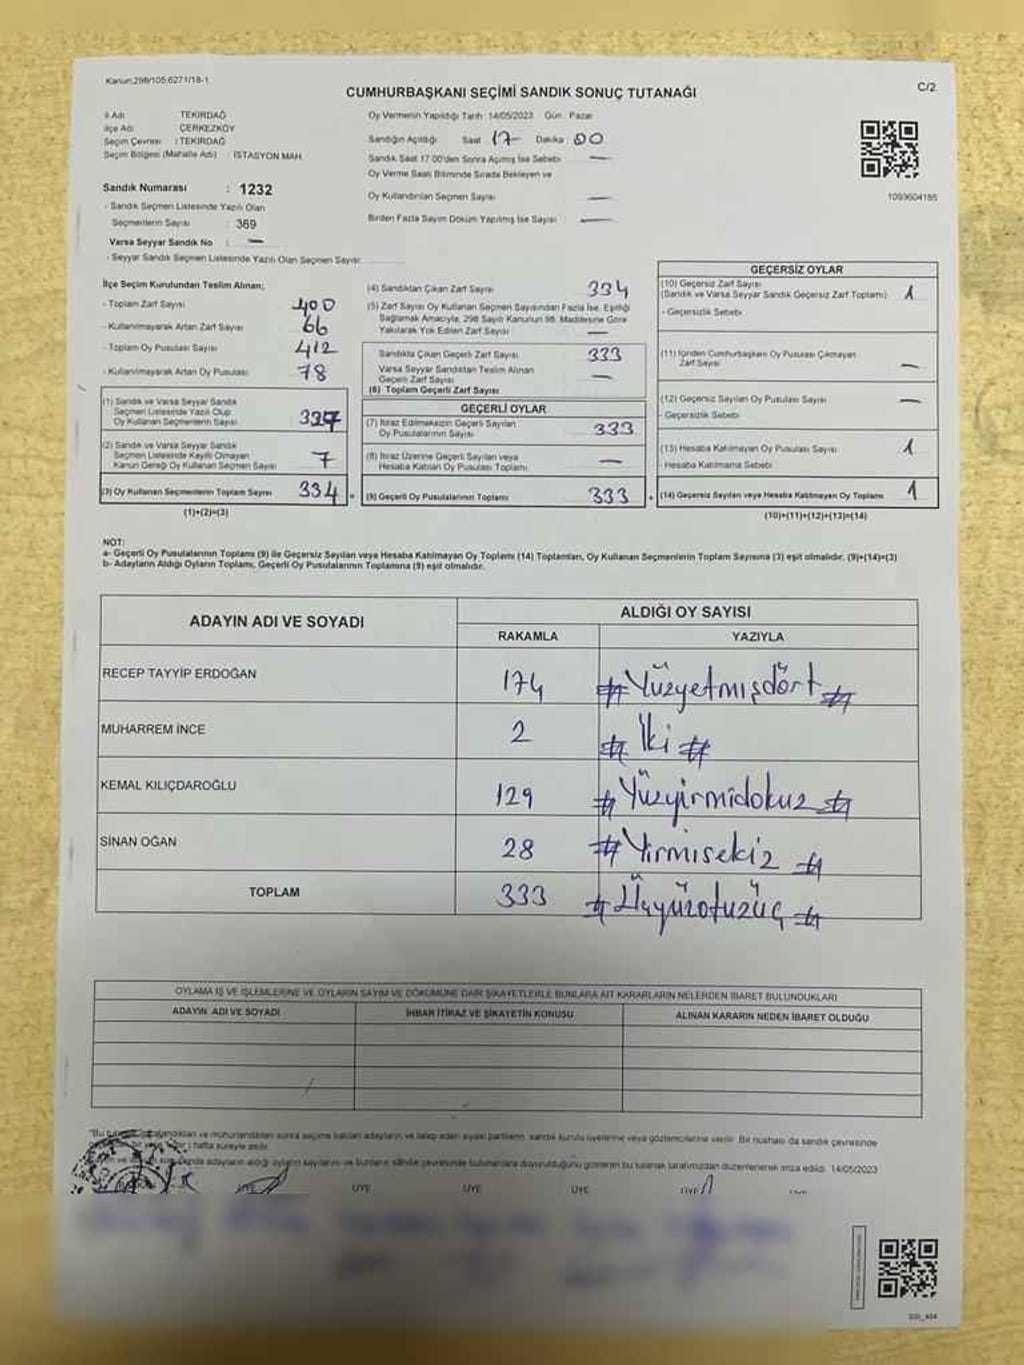 Kanun:298/105,6271/18-1
C/2
CUMHURBAŞKANI SEÇİMİ SANDIK SONUÇ TUTANAĞI
İl Adı TEKİRDAĞ
İlçe Adı ÇERKEZKÖY
Seçim Çevresi : TEKİRDAĞ
Seçim Bölgesi (Mahalle Adı) : İSTASYON MAH.
Sandık Numarası : 1232
- Sandık Seçmen Listesinde Yazılı Olan
Seçmenlerin Sayısı : 369
Varsa Seyyar Sandık No : —
- Seyyar Sandık Seçmen Listesinde Yazılı Olan Seçmen Sayısı:
Oy Vermenin Yapıldığı Tarih : 14/05/2023 Gün : Pazar
Sandığın Açıldığı Saat 17 Dakika : 00
Sandık Saat 17:00'den Sonra Açılmış İse Sebebi —
Oy Verme Saati Bitiminde Sırada Bekleyen ve
Oy Kullandırılan Seçmen Sayısı —
Birden Fazla Sayım Döküm Yapılmış İse Sayısı —
1093604185
İlçe Seçim Kurulundan Teslim Alınan;
- Toplam Zarf Sayısı 400
- Kullanılmayarak Artan Zarf Sayısı 66
- Toplam Oy Pusulası Sayısı 412
- Kullanılmayarak Artan Oy Pusulası 78
(1) Sandık ve Varsa Seyyar Sandık
Seçmen Listesinde Yazılı Olup
Oy Kullanan Seçmenlerin Sayısı 327
(2) Sandık ve Varsa Seyyar Sandık
Seçmen Listesinde Kayıtlı Olmayan
Kanun Gereği Oy Kullanan Seçmen Sayısı 7
(3) Oy Kullanan Seçmenlerin Toplam Sayısı 334
(1)+(2)=(3)
(4) Sandıktan Çıkan Zarf Sayısı 334
(5) Zarf Sayısı Oy Kullanan Seçmen Sayısından Fazla İse, Eşitliği
Sağlamak Amacıyla, 298 Sayılı Kanunun 98. Maddesine Göre
Yakılarak Yok Edilen Zarf Sayısı —
Sandıkta Çıkan Geçerli Zarf Sayısı 333
Varsa Seyyar Sandıktan Teslim Alınan
Geçerli Zarf Sayısı —
(6) Toplam Geçerli Zarf Sayısı
GEÇERLİ OYLAR
(7) İtiraz Edilmeksizin Geçerli Sayılan
Oy Pusulalarının Sayısı 333
(8) İtiraz Üzerine Geçerli Sayılan veya
Hesaba Katılan Oy Pusulası Toplamı —
(9) Geçerli Oy Pusulalarının Toplamı 333
GEÇERSİZ OYLAR
(10) Geçersiz Zarf Sayısı
(Sandık ve Varsa Seyyar Sandık Geçersiz Zarf Toplamı) 1
- Geçersizlik Sebebi
(11) İçinden Cumhurbaşkanı Oy Pusulası Çıkmayan
Zarf Sayısı —
(12) Geçersiz Sayılan Oy Pusulası Sayısı —
- Geçersizlik Sebebi
(13) Hesaba Katılmayan Oy Pusulası Sayısı 1
- Hesaba Katılmama Sebebi
(14) Geçersiz Sayılan veya Hesaba Katılmayan Oy Toplamı 1
(10)+(11)+(12)+(13)=(14)
NOT:
a- Geçerli Oy Pusulalarının Toplamı (9) ile Geçersiz Sayılan veya Hesaba Katılmayan Oy Toplamı (14) Toplamları, Oy Kullanan Seçmenlerin Toplam Sayısına (3) eşit olmalıdır. (9)+(14)=(3)
b- Adayların Aldığı Oyların Toplamı, Geçerli Oy Pusulalarının Toplamına (9) eşit olmalıdır.
ADAYIN ADI VE SOYADI
ALDIĞI OY SAYISI
RAKAMLA YAZIYLA
RECEP TAYYİP ERDOĞAN 174 # Yüzyetmişdört #
MUHARREM İNCE 2 # İki #
KEMAL KILIÇDAROĞLU 129 # Yüzyirmidokuz #
SİNAN OĞAN 28 # Yirmisekiz #
TOPLAM 333 # Üçyüzotuzüç #
OYLAMA İŞ VE İŞLEMLERİNE VE OYLARIN SAYIM VE DÖKÜMÜNE DAİR ŞİKAYETLERLE BUNLARA AİT KARARLARIN NELERDEN İBARET BULUNDUKLARI
ADAYIN ADI VE SOYADI İHBAR İTİRAZ VE ŞİKAYETİN KONUSU ALINAN KARARIN NEDEN İBARET OLDUĞU
ve mühürlendikten sonra seçime katılan adayların ve talep eden siyasi partilerin sandık kurulu üyelerine veya gözlemcilerine verilir. Bir nüshası da sandık çevresinde
hafta süreyle asılır.
adayların aldığı oyların sayılarını ve bunların sandık çevresinde bulunanlara duyurulduğunu gösteren bu tutanak tarafımızdan düzenlenerek imza edildi. 14/05/2023
ÜYE ÜYE ÜYE ÜYE ÜYE